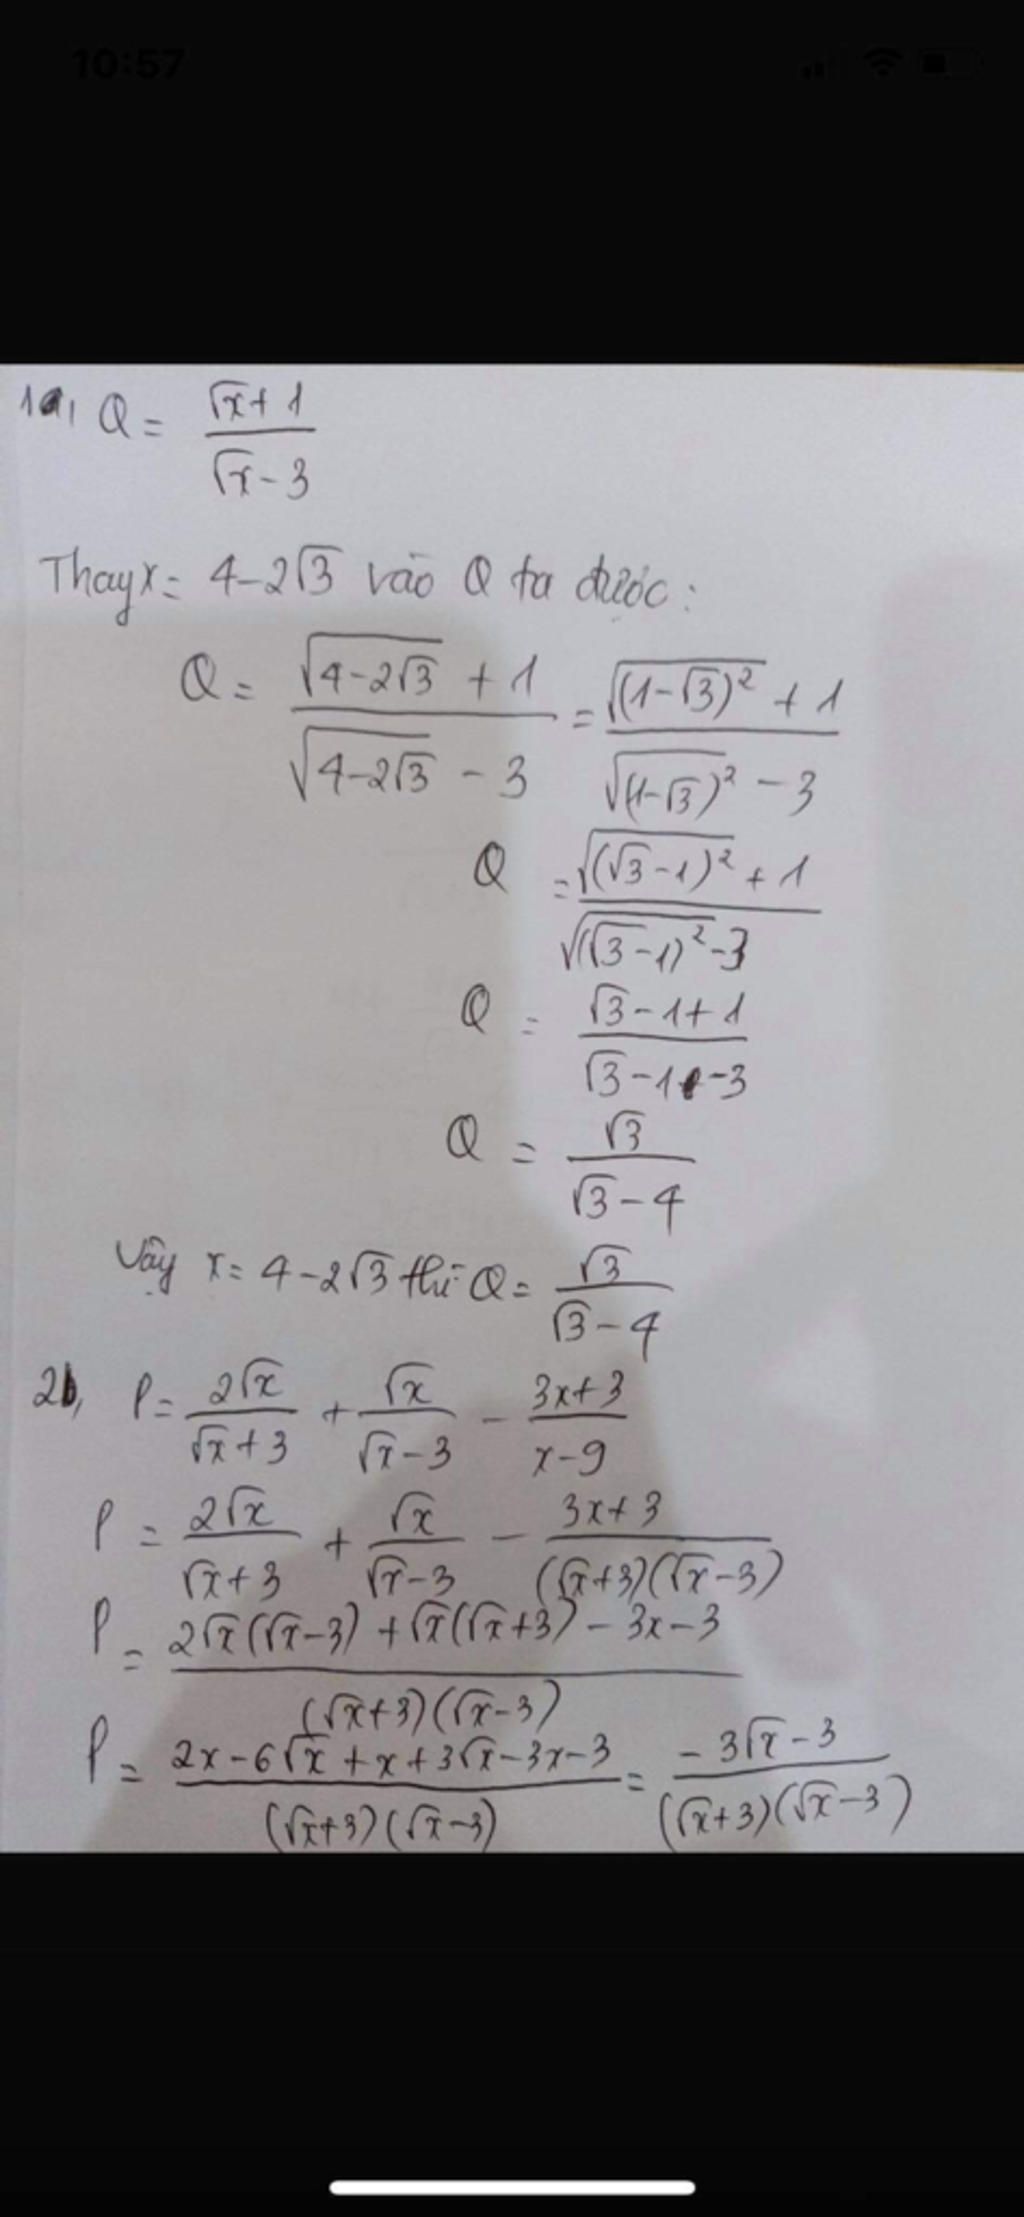 10:57
1a, Q = (√x + 1)/(√x - 3)
Thay x = 4 - 2√3 vào Q ta được:
Q = (√(4-2√3) + 1)/(√(4-2√3) - 3) = (√((1-√3)²) + 1)/(√((1-√3)²) - 3)
Q = (√((√3-1)²) + 1)/(√((√3-1)²) - 3)
Q = (√3 - 1 + 1)/(√3 - 1 - 3)
Q = √3/(√3 - 4)
Vậy x = 4 - 2√3 thì Q = √3/(√3 - 4)
2b, P = 2√x/(√x + 3) + √x/(√x - 3) - (3x + 3)/(x - 9)
P = 2√x/(√x + 3) + √x/(√x - 3) - (3x + 3)/((√x+3)(√x-3))
P = (2√x(√x-3) + √x(√x+3) - 3x - 3)/((√x+3)(√x-3))
P = (2x - 6√x + x + 3√x - 3x - 3)/((√x+3)(√x-3)) = (-3√x - 3)/((√x+3)(√x-3))